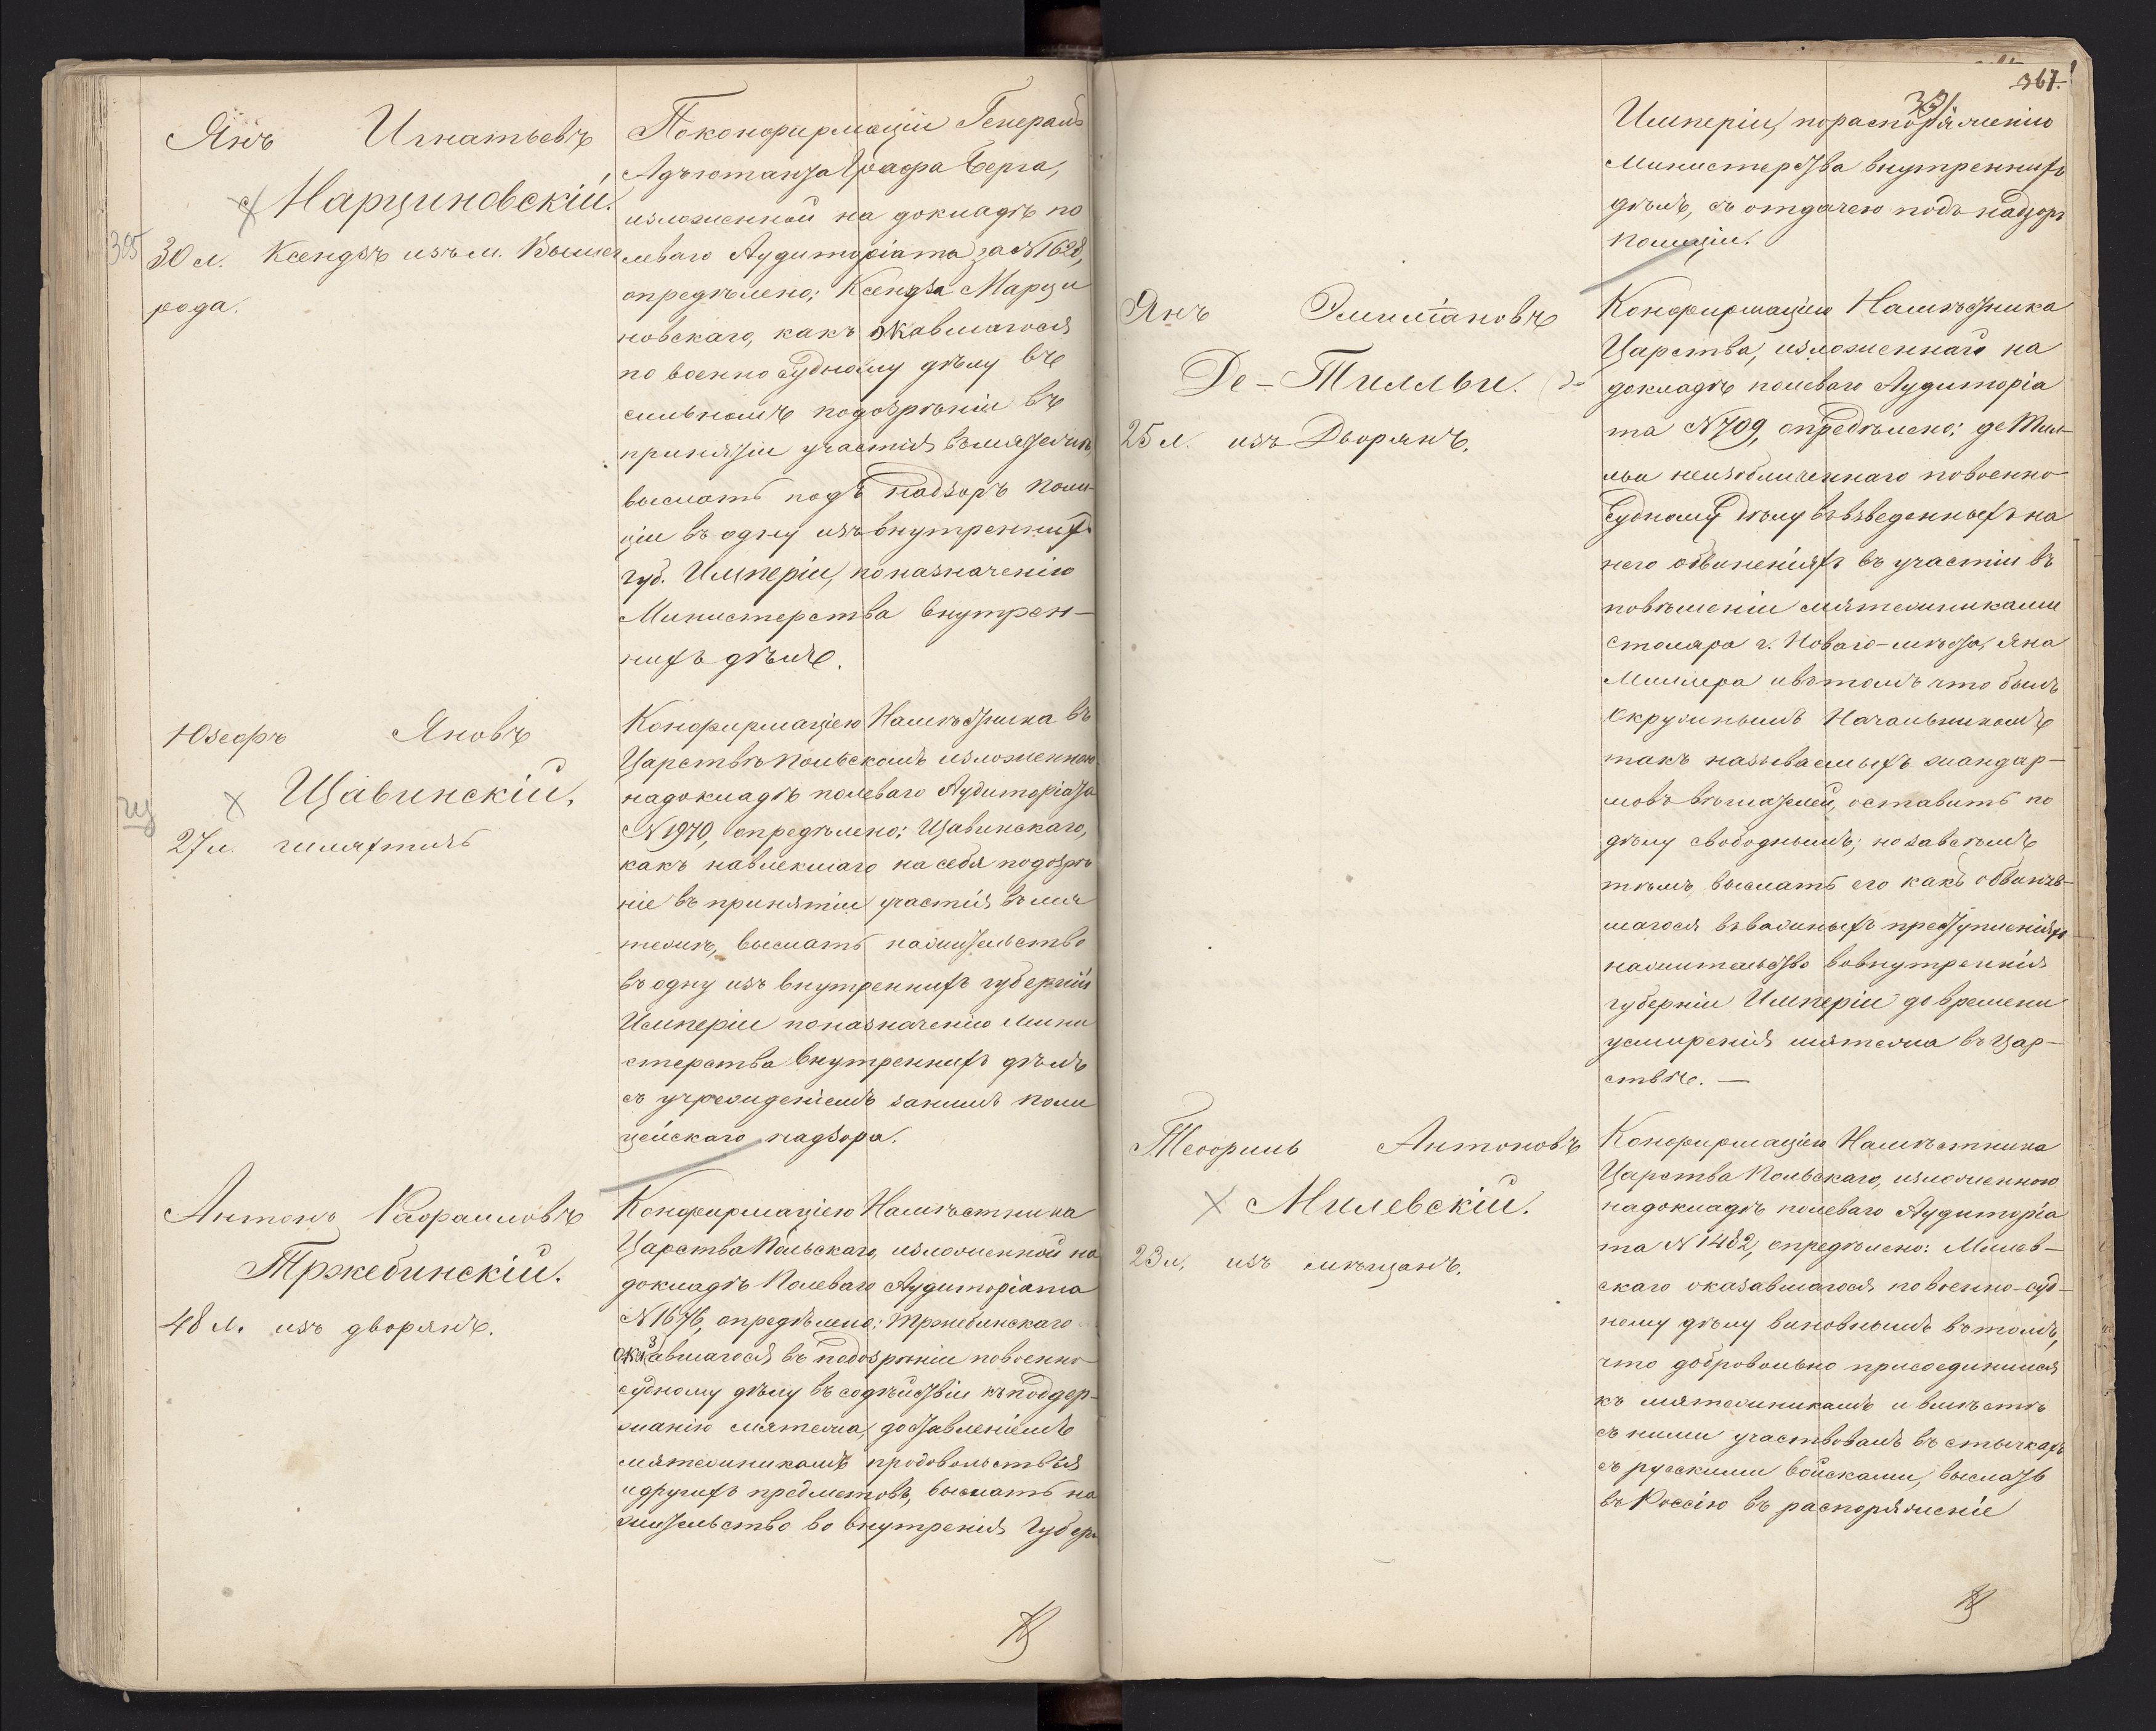 Янъ Игнатьевъ
Марциновскій.
385
30 л. Ксендзъ изъ м. Вышег
рода.
По конфирмаціи Генералъ
Адъютанта Графа Берга,
изложенной на докладѣ по
леваго Аудиторіата за № 1628,
опредѣлено: Ксендза Марци
новскаго, какъ окавшагося
по военно судному дѣлу въ
сильномъ подозрѣніи въ
принятіи участія въ мятежѣ,
выслать подъ надзоръ поли-
ціи въ одну изъ внутреннихъ
губ. Имперіи, по назначенію
Министерства внутрен-
нихъ дѣлъ.
Юзефъ Яновъ
Щавинскій.
27 л. шляхтичъ
Конфирмаціею Намѣстника въ
Царствѣ Польскомъ изложенною
на докладѣ полеваго Аудиторіата
№ 1970, опредѣлено: Щавинскаго,
какъ навлекшаго на себя подозрѣ
ніе въ принятіи участія въ мя
тежѣ, выслать на жительство
въ одну изъ внутреннихъ губерній
Имперіи по назначенію Мини
стерства Внутреннихъ дѣлъ
съ учрежденіемъ за нимъ поли
цейскаго надзора.
Антонъ Рафаиловъ
Тржебинскій.
48 л. изъ дворянъ.
Конфирмаціею Намѣстника
Царства Польскаго, изложенной на
докладѣ Полеваго Аудиторіата
№ 1676, опредѣлено: Тржебинскаго
оказавшагося въ подозрѣніи по военно
судному дѣлу въ содѣйствіи къ поддер-
жанію мятежа, доставленіемъ
мятежникамъ продовольствія
и другихъ предметовъ, выслать на
жительство во внутренія Губер
367.
Имперіи, по распоряженію
Министерства внутреннихъ
дѣлъ, съ отдачею подъ надзоръ
полиціи.
Янъ Эмиліановъ
Де-Тилльи.
25 л. изъ Дворянъ.
Конфирмаціею Намѣстника
Царства, изложеннаго на
докладѣ полеваго Аудиторіа
та № 709, опредѣлено: де Тил-
льи неизобличеннаго по военно
судному дѣлу въ взведенныхъ на
него обвиненіяхъ въ участіи въ
повѣшеніи мятежниками
столяра г. Новаго-мѣста, Яна
Миллера и въ томъ что былъ
Окружнымъ Начальникомъ
такъ называемыхъ жандар-
мовъ вѣшателей, оставить по
дѣлу свободнымъ; но за всѣмъ
тѣмъ выслать его какъ обвиняв-
шагося въ важныхъ преступленіяхъ
на жительство во внутреннія
губерніи Имперіи до времени
усмиренія мятежа въ Цар-
ствѣ. —
Теофиль Антоновъ
Милевскій.
23 л. изъ мѣщанъ.
Конфирмаціею Намѣстника
Царства Польскаго, изложенною
на докладѣ полеваго Аудиторіа
та № 1482, опредѣлено: Милев-
скаго оказавшагося по военно-суд-
ному дѣлу виновнымъ въ томъ,
что добровольно присоединился
къ мятежникамъ и вмѣстѣ
съ ними участвовалъ въ стычкахъ
съ русскими войсками, выслать
въ Россію въ распоряженіе